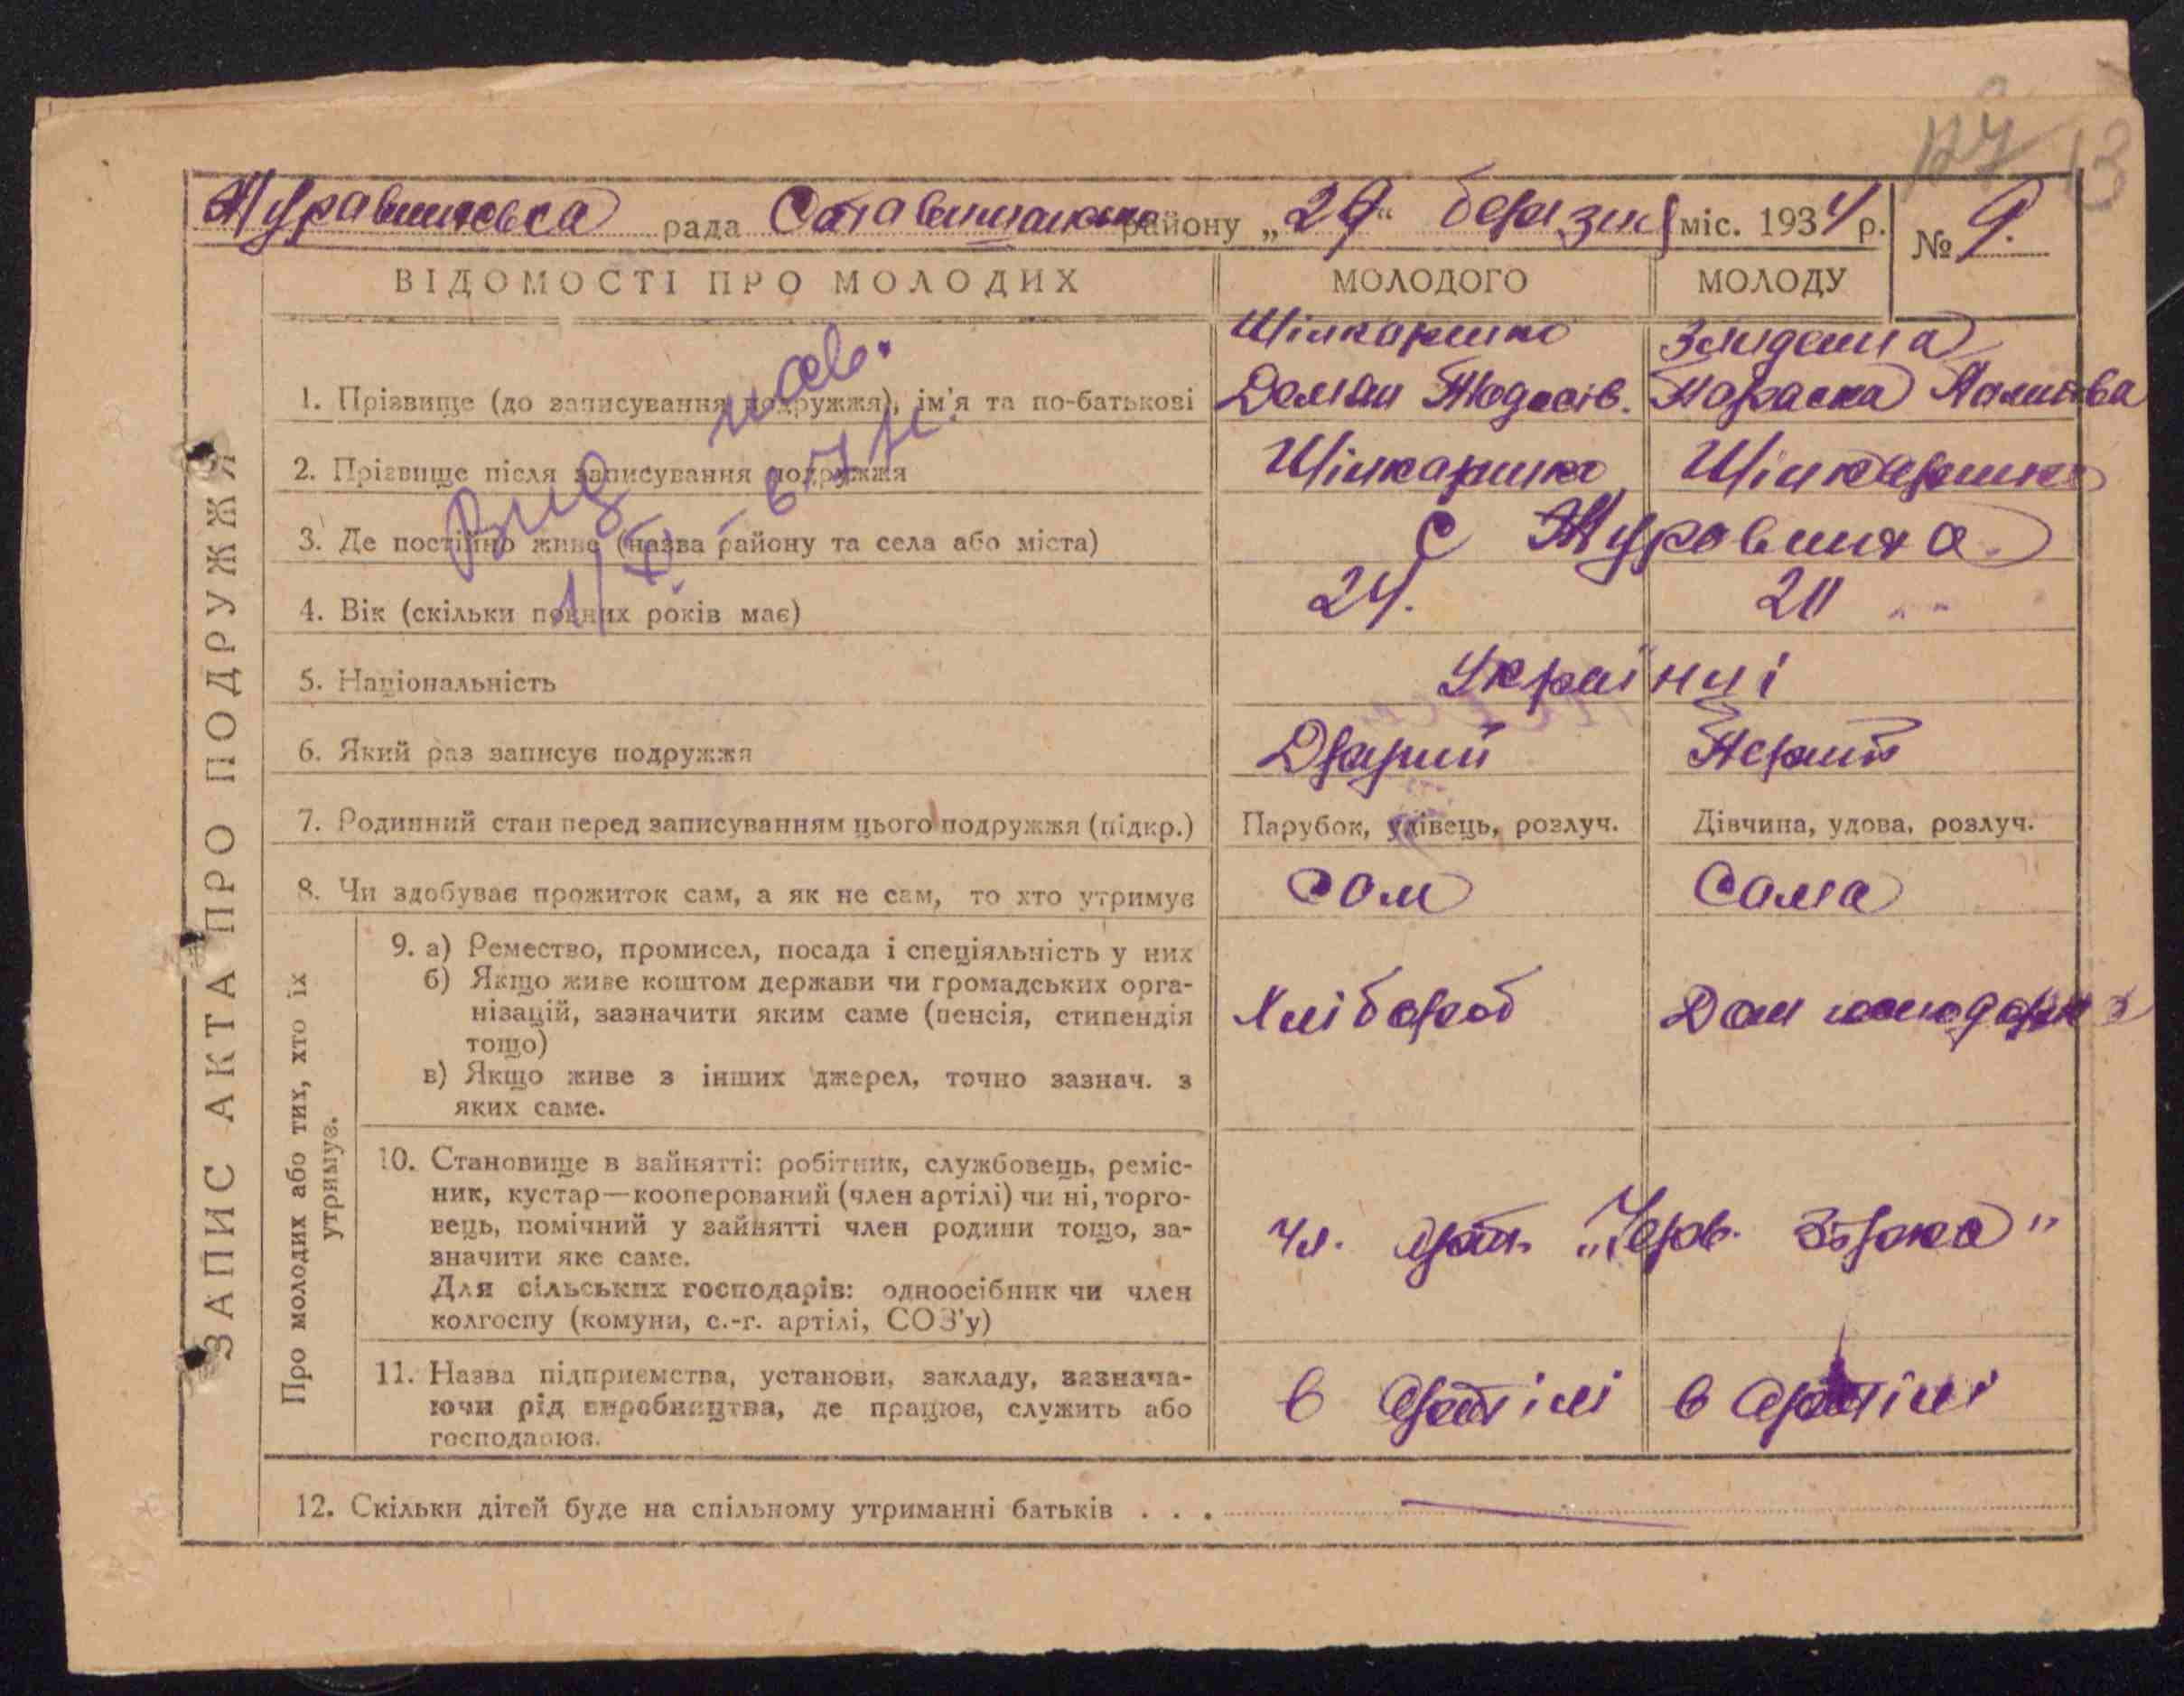 Журавлиська рада Ставищанського району „29“ березня міс. 1934 р. № 9.
ВІДОМОСТІ ПРО МОЛОДИХ
МОЛОДОГО
МОЛОДУ
ЗАПИС АКТА ПРО ПОДРУЖЖЯ
1. Прізвище (до записування подружжя), ім'я та по-батькові
Шінкаренко
Демян Тодосів.
Параска
2. Прізвище після записування подружжя
Шінкаренко
Шінкаренко
3. Де постійно живе (назва району та села або міста)
С Журавлиха.
4. Вік (скільки повних років має)
24.
20
5. Національність
Українці
6. Який раз записує подружжя
Другий
Перший
7. Родинний стан перед записуванням цього подружжя (підкр.)
Парубок, удівець, розлуч.
Дівчина, удова, розлуч.
8. Чи здобуває прожиток сам, а як не сам, то хто утримує
Сам
Сама
Про молодих або тих, хто їх
утримує.
9. а) Ремество, промисел, посада і спеціяльність у них
б) Якщо живе коштом держави чи громадських орга-
нізацій, зазначити яким саме (пенсія, стипендія
тощо)
в) Якщо живе з інших джерел, точно зазнач. з
яких саме.
Хлібороб
Дом господарка
10. Становище в зайнятті: робітник, службовець, реміс-
ник, кустар—кооперований (член артілі) чи ні, торго-
вець, помічний у зайнятті член родини тощо, за-
значити яке саме.
Для сільських господарів: одноосібник чи член
колгоспу (комуни, с.-г. артілі, СОЗ'у)
Чл. арт. „Черв. Зірка"
11. Назва підприємства, установи, закладу, зазнача-
ючи рід виробництва, де працює, служить або
господарює.
в Артілі
в Артілі
12. Скільки дітей буде на спільному утриманні батьків . . .